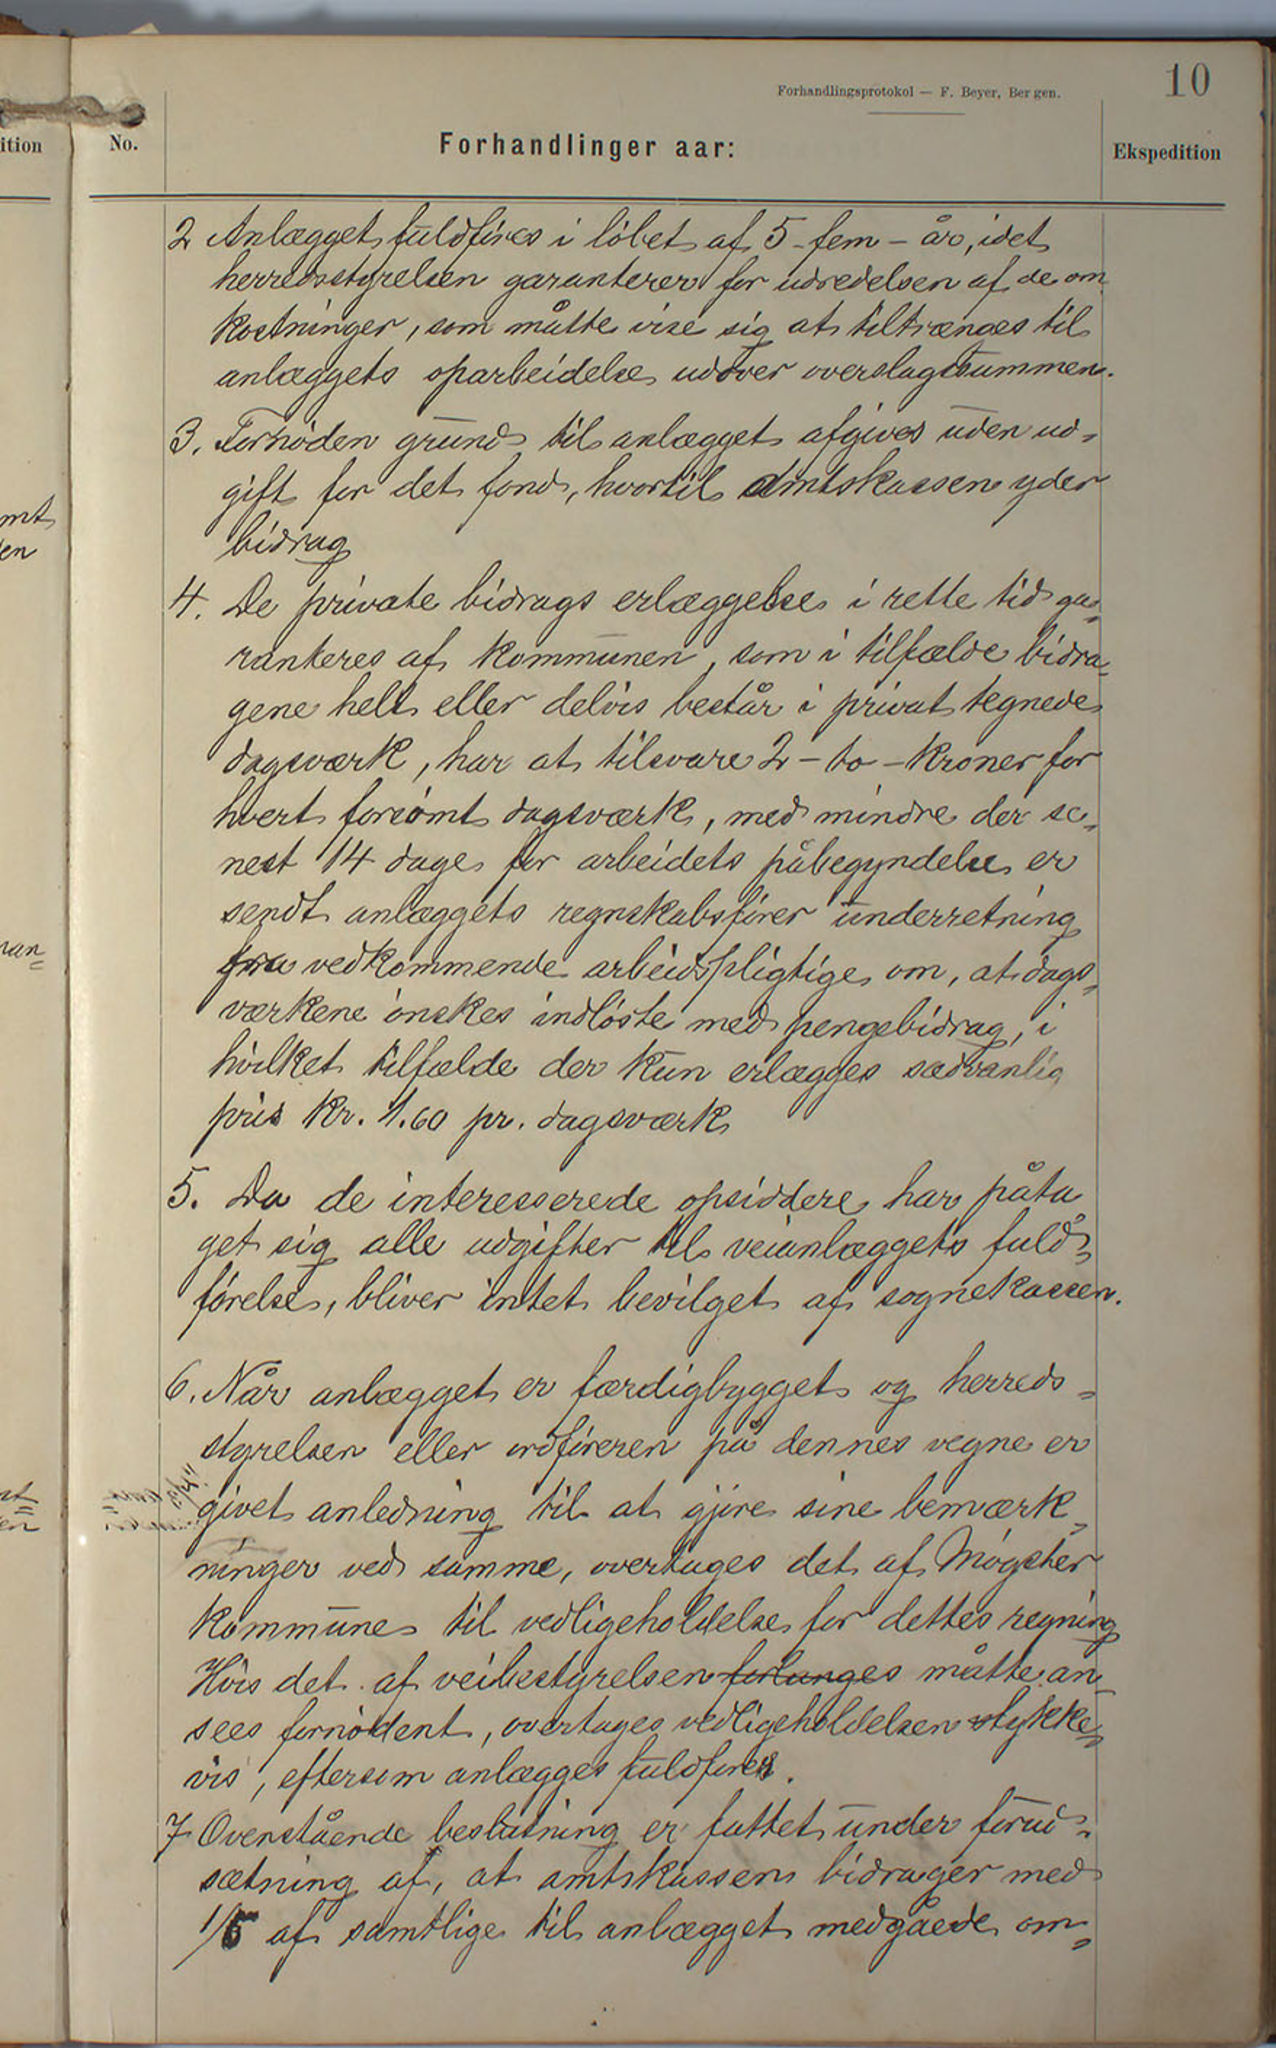 Forhandlingsprotokol — F. Beyer, Bergen.
10
ition
No.
Forhandlinger aar:
Ekspedition
2 Anlægget fuldføres i løbet af 5 - fem - år, idet
herredsstyrelsen garanterer for udredelsen af de om
kostninger, som måtte vise sig at tiltrænges til
anlæggets oparbeidelse udover overslagssummen.
3. Fornøden grund til anlægget afgives uden ud-
gift for det fond, hvortil amtskassen yder
bidrag
4. De private bidrags erlæggelse i rette tid ga-
ranteres af kommunen, som i tilfælde bidra-
gene helt eller delvis består i privat tegnede
dagsværk, har at tilsvare 2 - to - kroner for
hvert forsømt dagsværk, med mindre der se-
nest 14 dage før arbeidets påbegyndelse er
sendt anlæggets regnskabsfører underretning
fra vedkommende arbeidspligtige om, at dags-
værkene ønskes indløste med pengebidrag, i
hvilket tilfælde der kun erlægges sædvanlig
pris kr. 1.60 pr. dagsværk
5. Da de interesserede opsiddere har påta
get sig alle udgifter til veianlæggets fuld-
førelse, bliver intet bevilget af sognekassen.
6. Når anlægget er færdigbygget og herreds-
styrelsen eller ordføreren på dennes vegne er
givet anledning til at gjøre sine bemærk-
ninger ved samme, overtages det af Møgster
kommune til vedligeholdelse for dettes regning
Hvis det af veibestyrelsen forlanges måtte an-
sees fornødent, overtages vedligeholdelsen stykke-
vis, eftersom anlægges fuldføres.
7 Ovenstående beslutning er fattet under forud-
sætning af, at amtskassen bidrager med
1/5 af samtlige til anlægget medgåede om-
mt
en
nan=